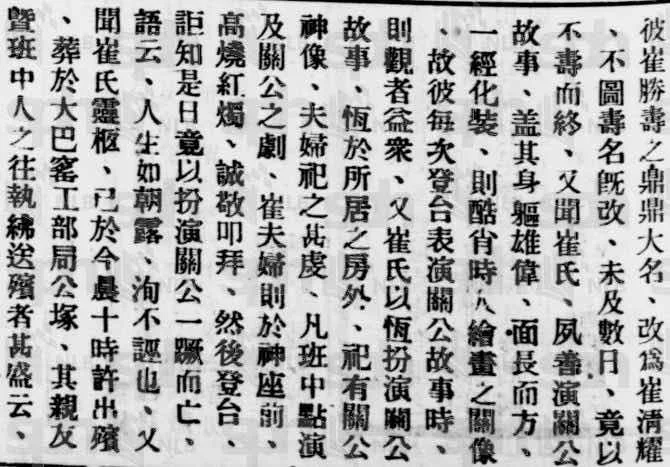 彼崔勝壽之鼎鼎大名、改爲崔清耀
、不圖壽名旣改、未及數日、竟以
不壽而終、又聞崔氏、夙善演關公
故事、蓋其身軀雄偉、面長而方、
一經化裝、則酷肖時人繪畫之關像
、故彼每次登台表演關公故事時、
則觀者益衆、又崔氏以恆扮演關公
故事、恆於所居之房外、祀有關公
神像、夫婦祀之甚虔、凡班中點演
及關公之劇、崔夫婦則於神座前、
高燒紅燭、誠敬叩拜、然後登台、
詎知是日竟以扮演關公一蹶而亡、
語云、人生如朝露、洵不誣也、又
聞崔氏靈柩、已於今晨十時許出殯
、葬於大巴窰工部局公塚、其親友
曁班中人之往執紼送殯者甚盛云、